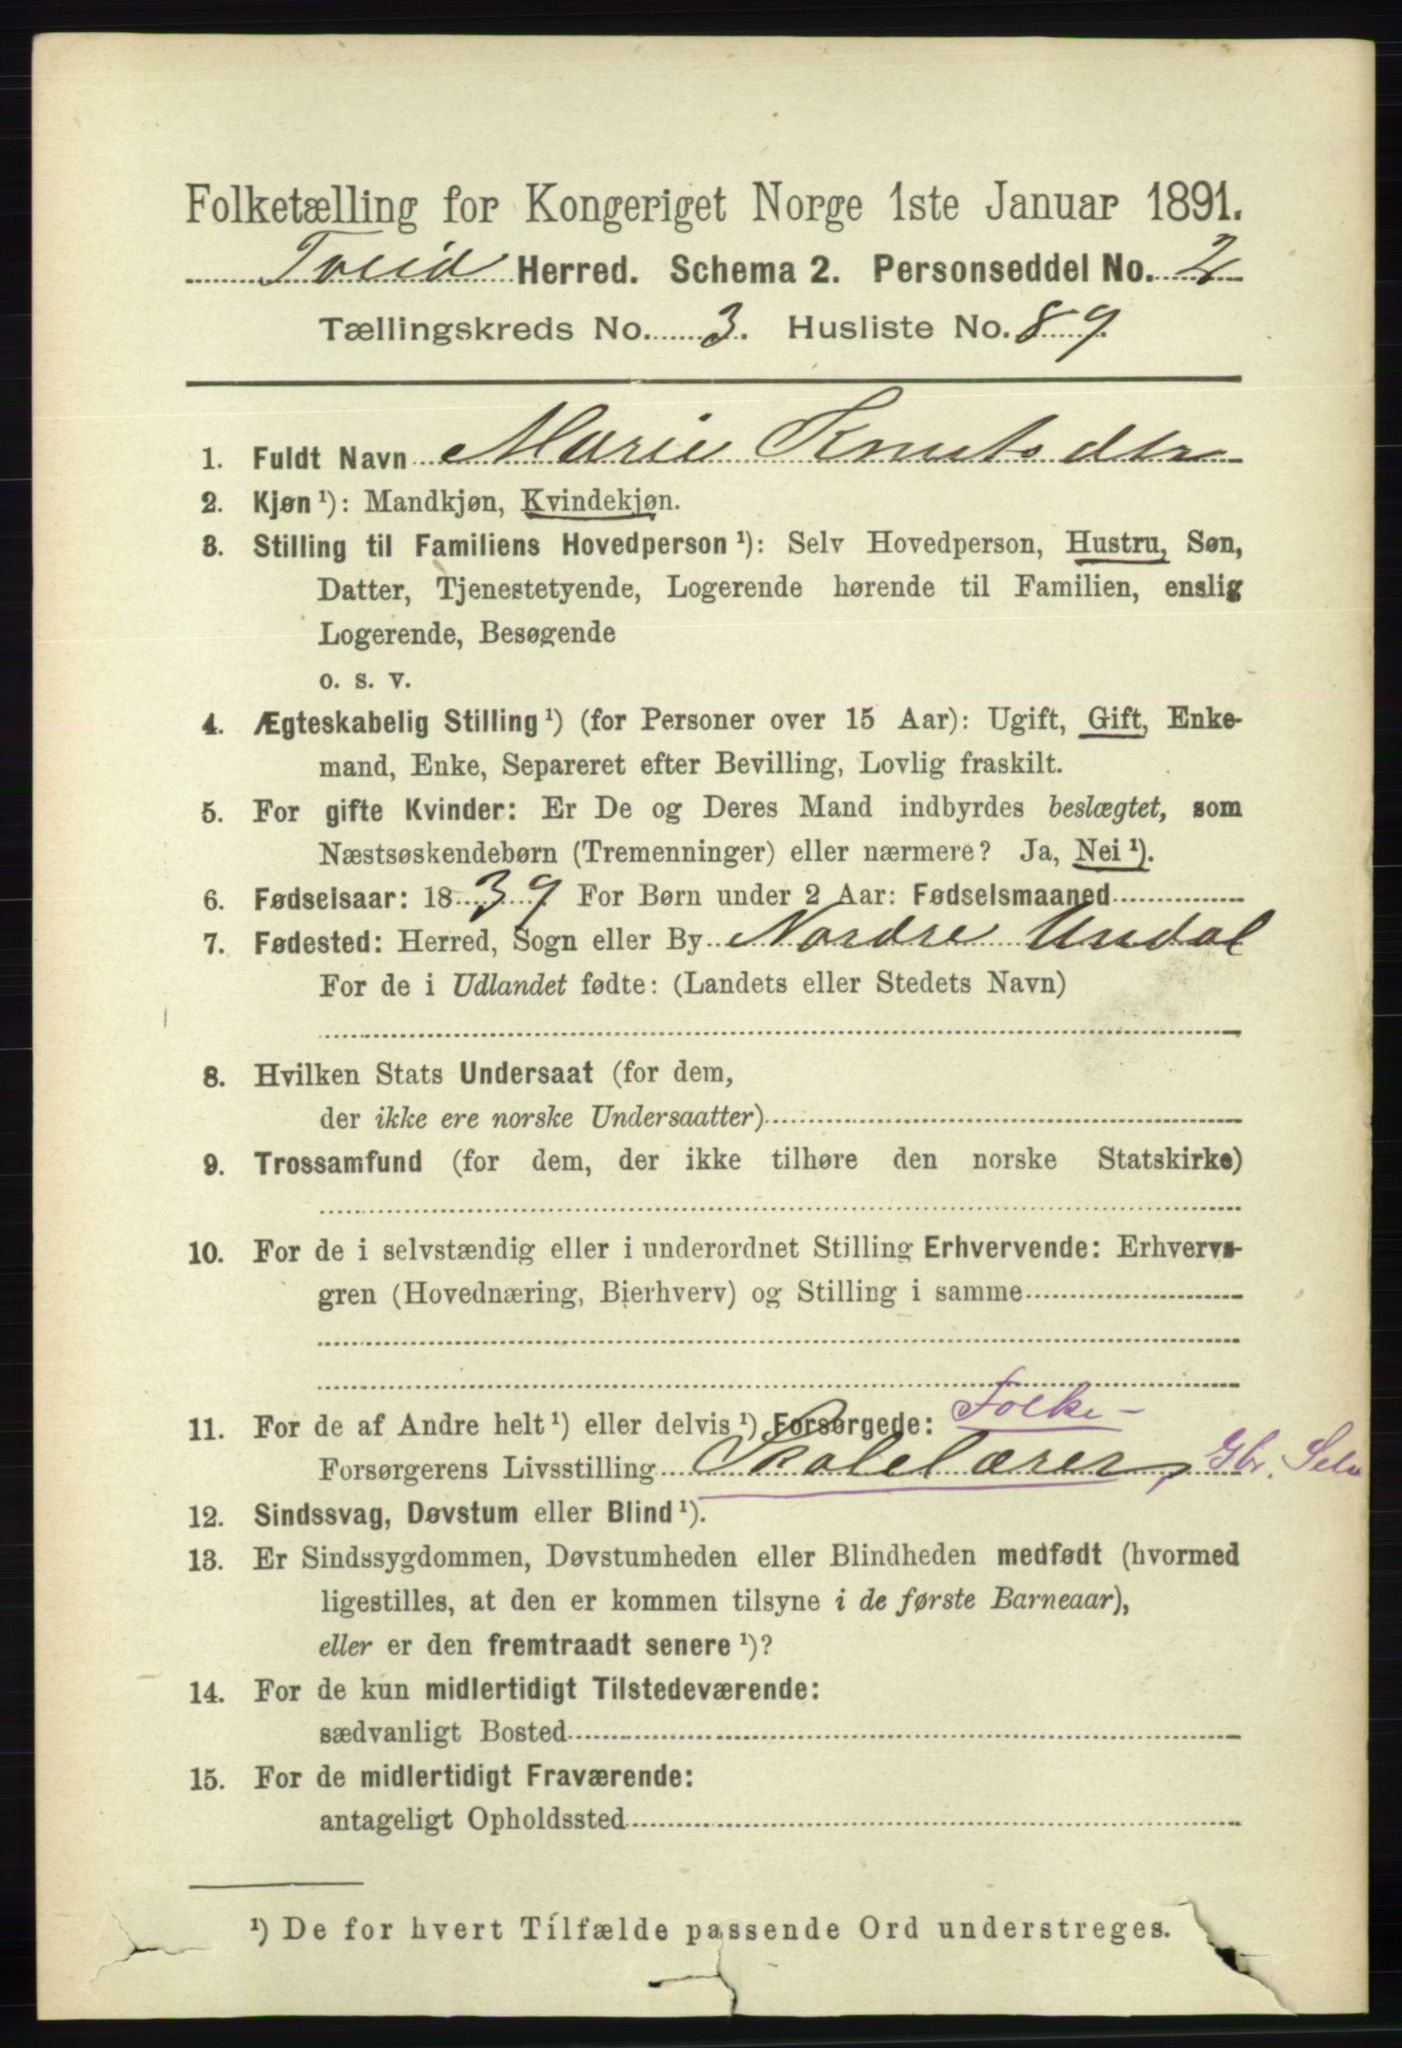 Folketælling for Kongeriget Norge 1ste Januar 1891.
Tveid Herred. Schema 2. Personseddel No. 2
Tællingskreds No. 3. Husliste No. 89
1. Fuldt Navn Marie Knutsdtr
2. Kjøn ¹): Mandkjøn, Kvindekjøn.
3. Stilling til Familiens Hovedperson ¹): Selv Hovedperson, Hustru, Søn,
Datter, Tjenestetyende, Logerende hørende til Familien, enslig
Logerende, Besøgende
o. s. v.
4. Ægteskabelig Stilling ¹) (for Personer over 15 Aar): Ugift, Gift, Enke-
mand, Enke, Separeret efter Bevilling, Lovlig fraskilt.
5. For gifte Kvinder: Er De og Deres Mand indbyrdes beslægtet, som
Næstsøskendebørn (Tremenninger) eller nærmere? Ja, Nei ¹).
6. Fødselsaar: 1839 For Børn under 2 Aar: Fødselsmaaned
7. Fødested: Herred, Sogn eller By Nordre Undal
For de i Udlandet fødte: (Landets eller Stedets Navn)
8. Hvilken Stats Undersaat (for dem,
der ikke ere norske Undersaatter)
9. Trossamfund (for dem, der ikke tilhøre den norske Statskirke)
10. For de i selvstændig eller i underordnet Stilling Erhvervende: Erhvervs-
gren (Hovednæring, Bierhverv) og Stilling i samme
11. For de af Andre helt ¹) eller delvis ¹) Forsørgede: Folke-
Forsørgerens Livsstilling Skolelærer, Gbr. Selv
12. Sindssvag, Døvstum eller Blind ¹).
13. Er Sindssygdommen, Døvstumheden eller Blindheden medfødt (hvormed
ligestilles, at den er kommen tilsyne i de første Barneaar),
eller er den fremtraadt senere ¹)?
14. For de kun midlertidigt Tilstedeværende:
sædvanligt Bosted
15. For de midlertidigt Fraværende:
antageligt Opholdssted
¹) De for hvert Tilfælde passende Ord understreges.